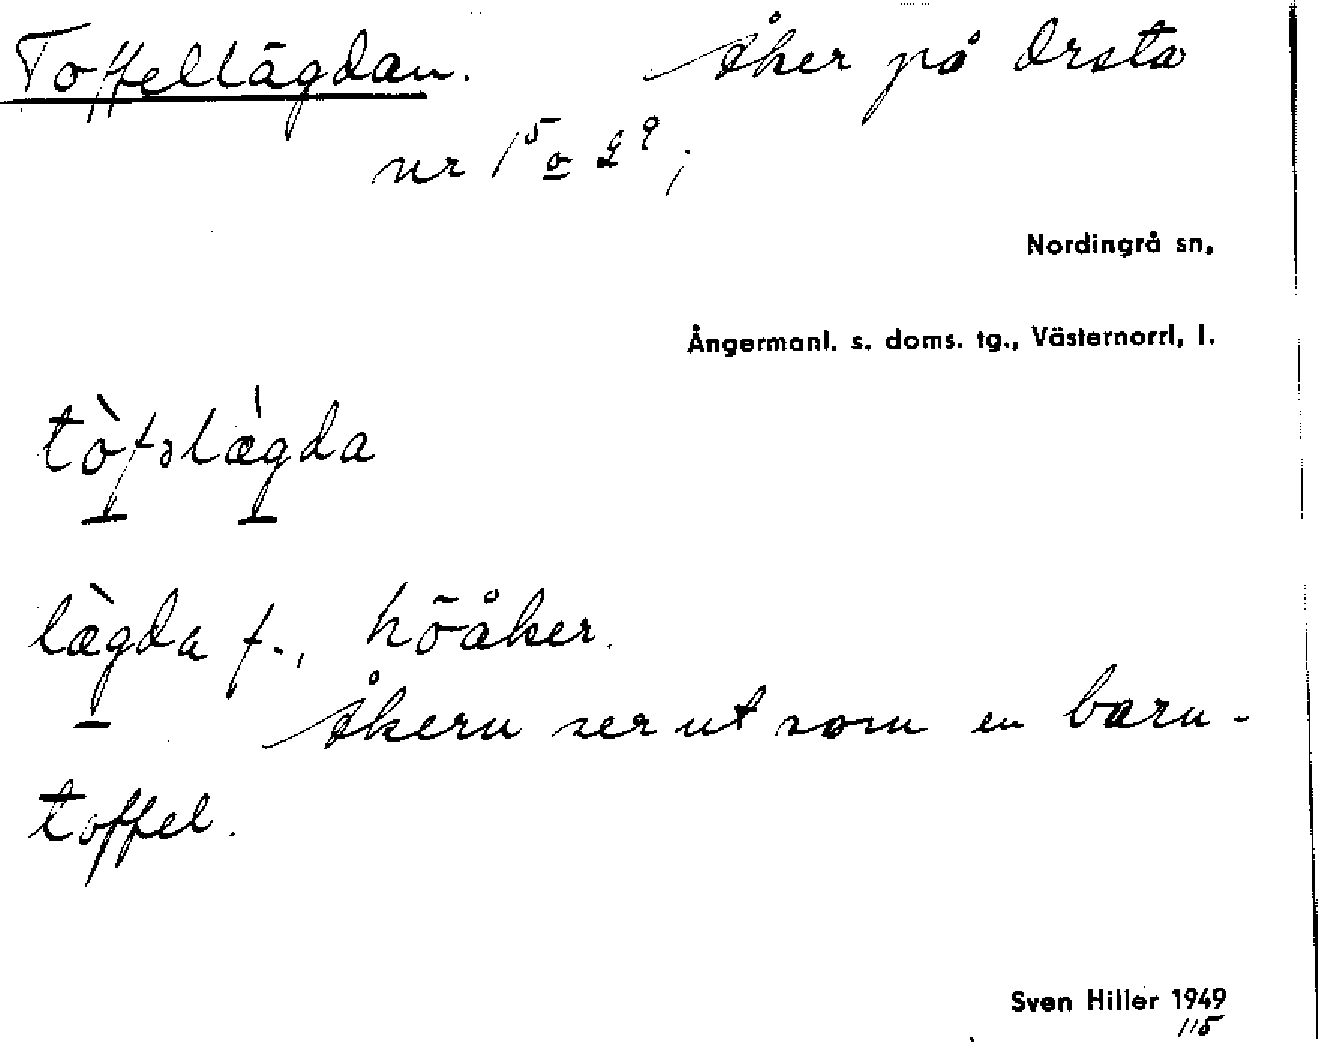 Toffellägdan. Åker på Orsta
nr 1⁵ o 2⁹;
Nordingrå sn,
Ångermanl. s. doms. tg., Västernorrl, l.
tòfəlæ̀gda
læ̀gda f., höåker.
Åkern ser ut som en barn-
toffel.
Sven Hiller 1949
115